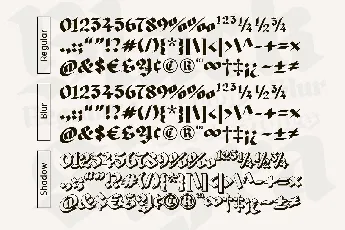 Regular
0123456789%‰ ¹²³¼½¾
.,:;“”"!?#(/){*}[\]|<|>\^~-+=×
@&$€£¥¢©®™∞†‡¡¿–±≠
Blur
0123456789%‰ ¹²³¼½¾
.,:;“”"!?#(/){*}[\]|<|>\^~-+=×
@&$€£¥¢©®™∞†‡¡¿–±≠
Shadow
0123456789%‰ ¹²³¼½¾
.,:;“”"!?#(/){*}[\]|<|>\^~-+=×
@&$€£¥¢©®™∞†‡¡¿–±≠